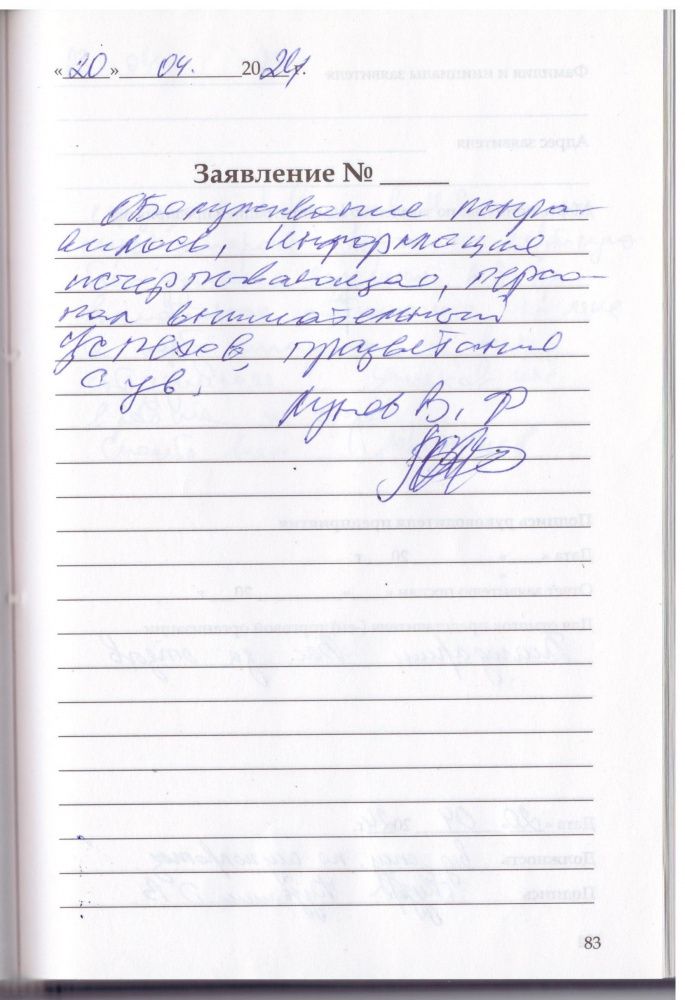 «20» 04. 2024 г.
Заявление №
Обслуживание понра-
вилось, Информация
исчерпывающая, персо-
нал внимательный
Успехов, процветания
С ув,
В, Ф
83